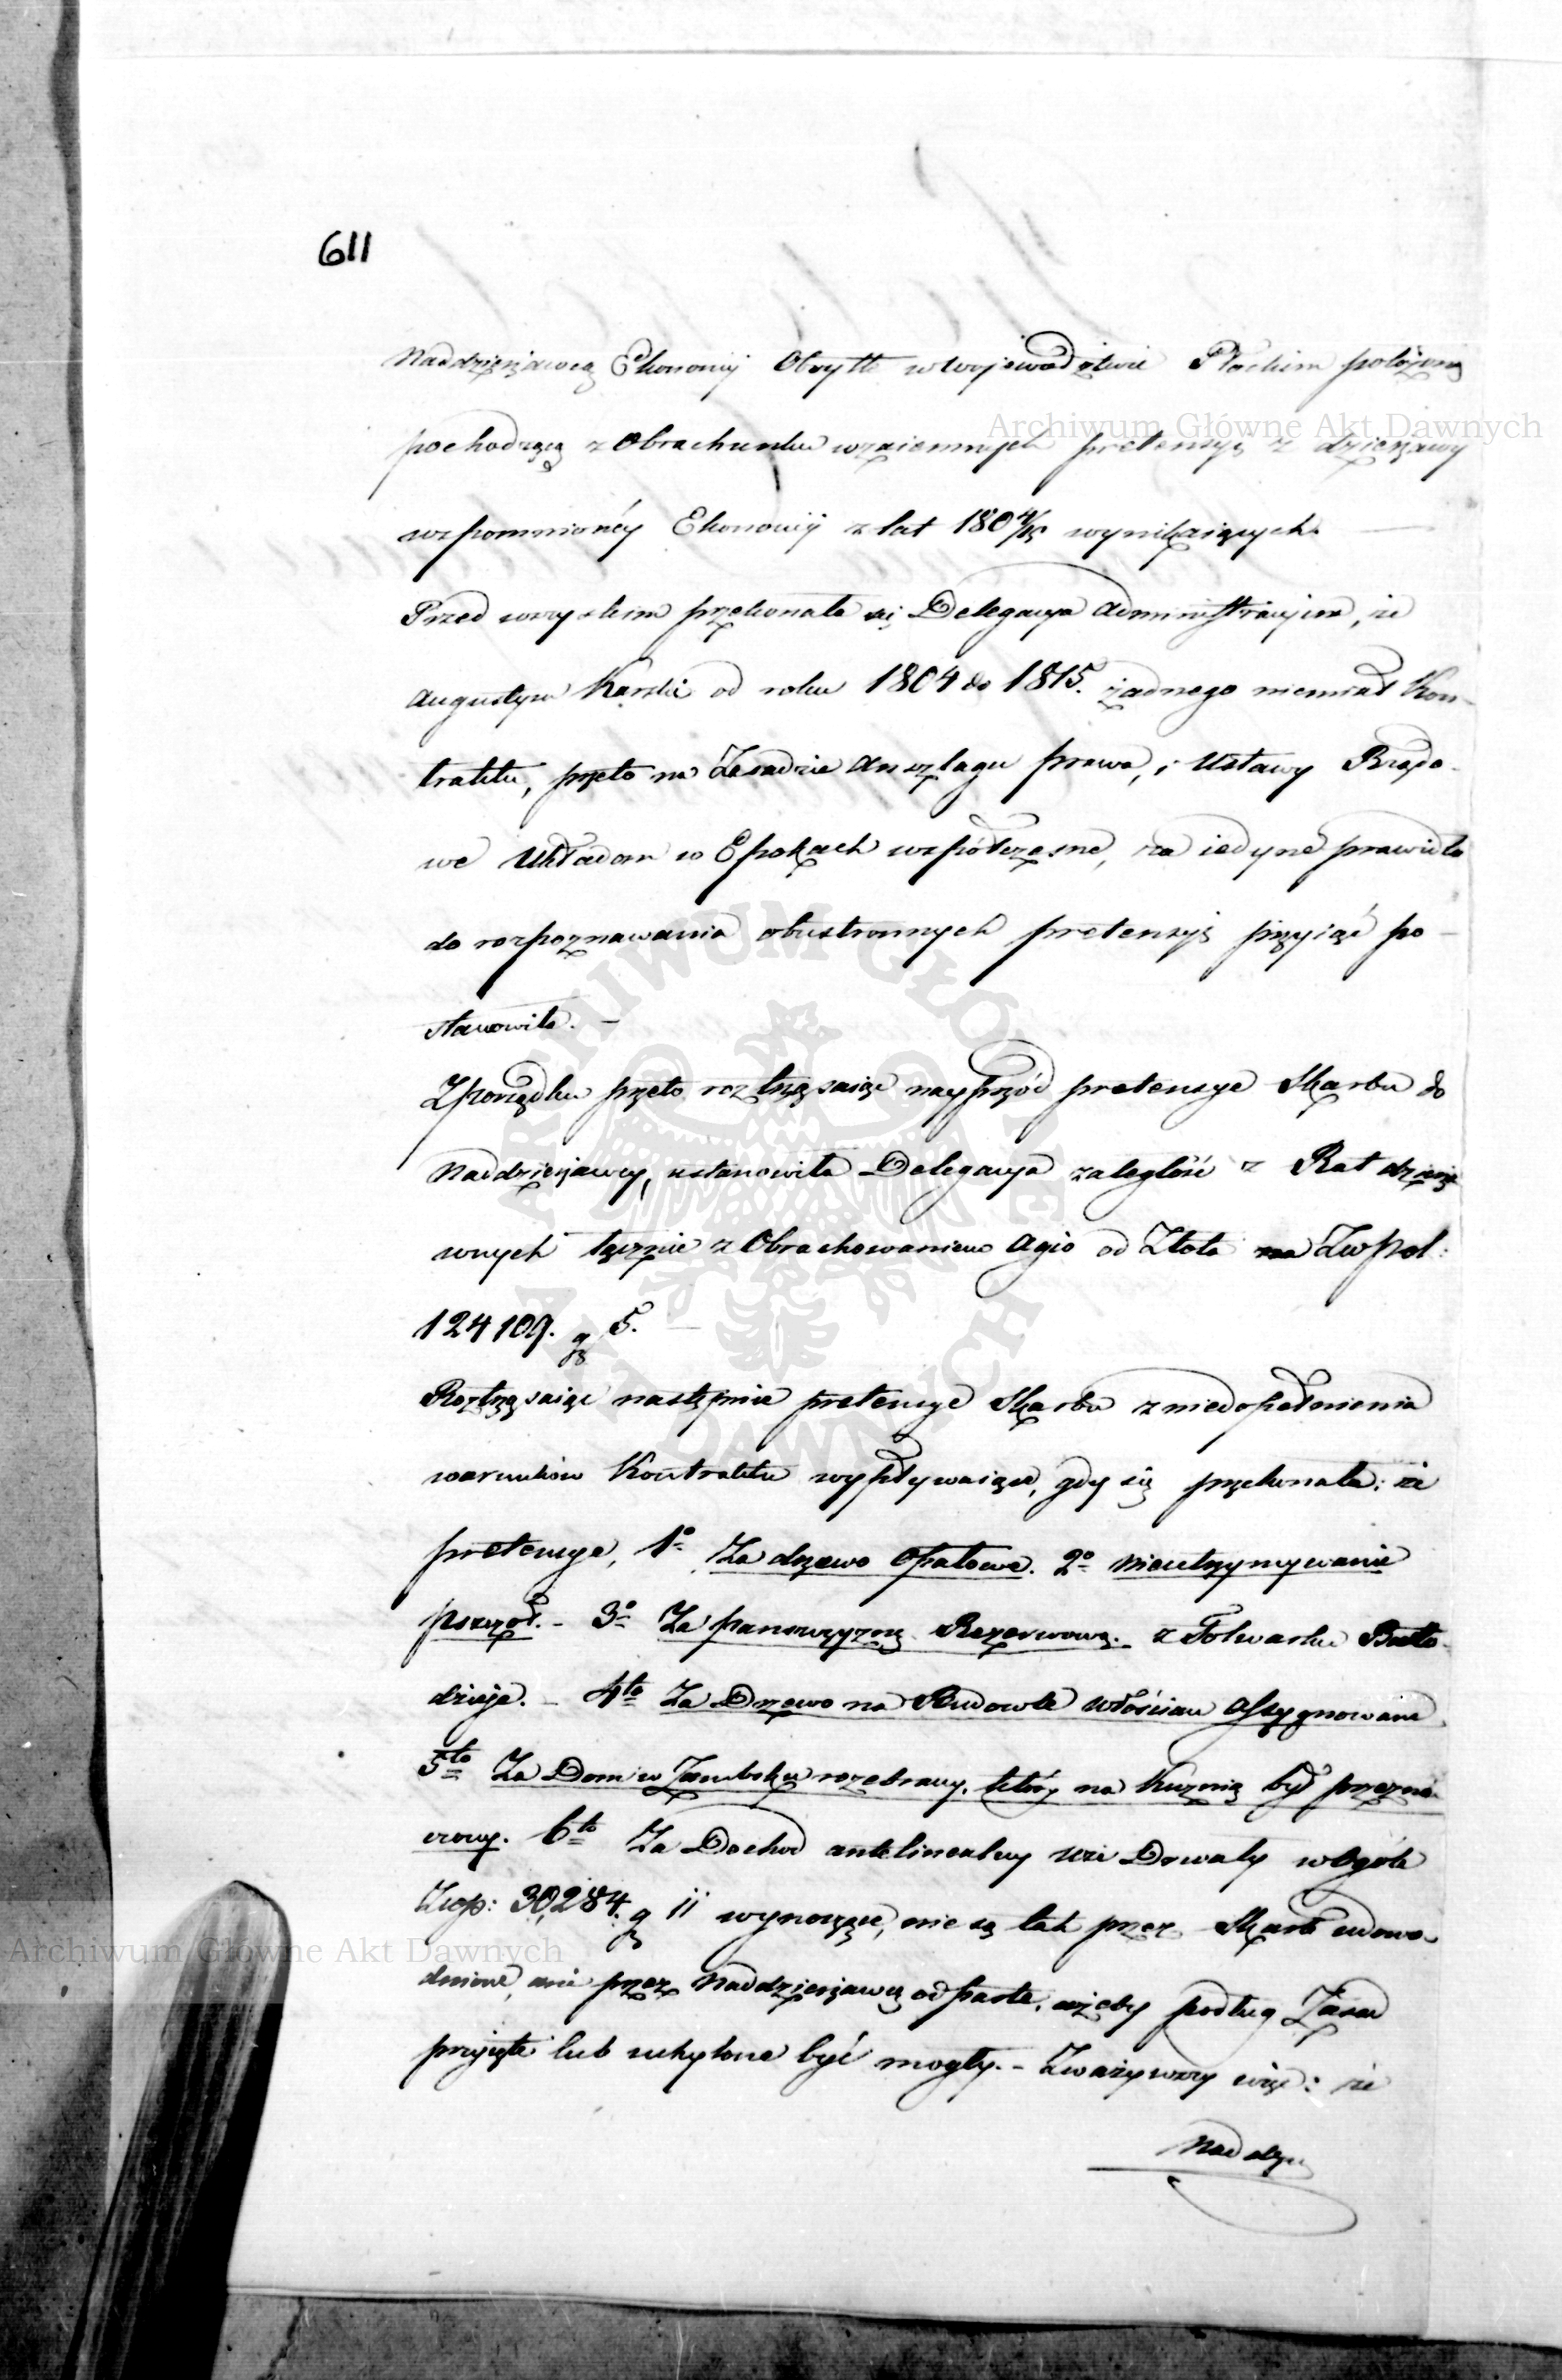 611
Naddzierżawcą Ekonomij Obrytte w Wojewodztwie Płockim położonej
pochodzącą z Obrachunku wzaiemnych pretensyi z dzierżawy
wspomnionéy Ekonomij z lat 1804/15 wynikaiących.
Przed wszystkim przekonała się Delegacya Administracyina, że
Augustyn Karski od roku 1804 do 1815. żadnego niemiał Kon-
traktu, przeto na Zasadzie Anszlagu prawa, i Ustawy Rządo-
we Układom w Epokach współczesne, za iedyne prawidło
do rozpoznawania obustronnych pretensyi przyiąć po-
stanowiła. —
Z porządku przeto roztrząsaiąc nayprzód pretensye Skarbu do
Naddzierżawcy, ustanowiła Delegacya zaległość z Rat dzierża
wnych łącznie z Obrachowaniem Agio od Złota na Zwpol:
124109. g 5. —
Roztrząsaiąc następnie pretensye Skarbu z niedopełnienia
warunków Kontraktu wypływaiące, gdy się przekonała: że
pretensye, 1° Za drzewo Opałowe. 2° nieutrzymywanie
pszczół. - 3° Za pańszczyznę Rezerwową. z Folwarku Bart-
dzieje. - 4to Za Drzewo na Budowle Włościan Assygnowane
5to Za Dom w Zambsku rozebrany, który na Kuznią był przezna-
czony. 6to Za Dochod antelinealny ... Drwały wogóle
Zwp: 30,284. g 11 wynoszące, nie są tak przez Skarb udowo-
dnione, ani przez Naddzierżawcę odparte, ażeby podług Zasad
przyięte lub uchylone być mogły. - Zważywszy więc: że
Naddzie
Archiwum Główne Akt Dawnych
Archiwum Główne Akt Dawnych
ARCHIWUM GŁÓWNE AKT DAWNYCH